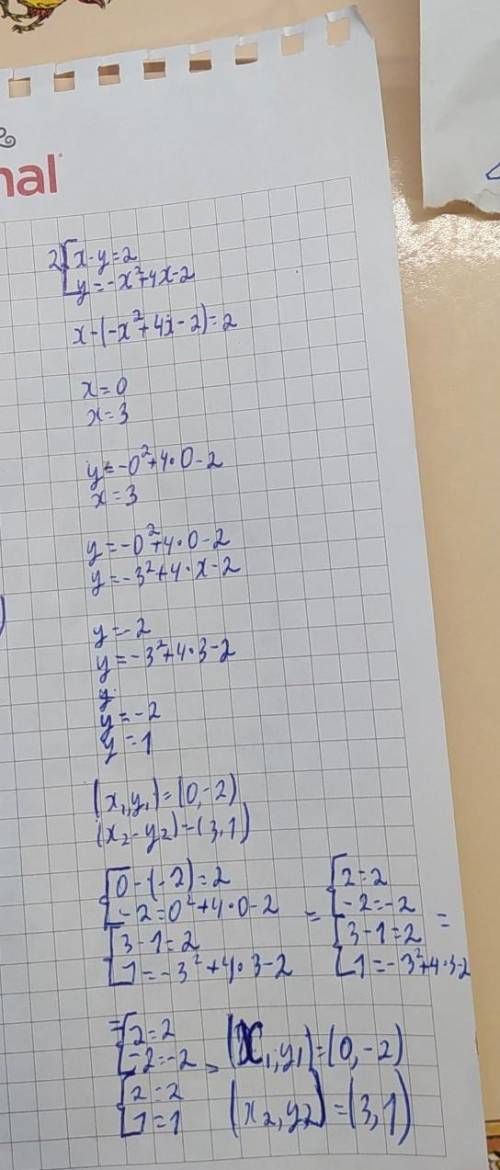 nal
2) x-y=2
y=-x²+4x-2
x-(-x²+4x-2)=2
x=0
x=3
y=-0²+4·0-2
x=3
y=-0²+4·0-2
y=-3²+4·x-2
y=-2
y=-3²+4·3-2
y
y=-2
y=1
(x₁,y₁)=(0,-2)
(x₂-y₂)=(3,1)
{0-(-2)=2
-2=0²+4·0-2
{3-1=2
1=-3²+4·3-2
=
{2=2
-2=-2
{3-1=2
1=-3²+4·3-2
=
={2=2
-2=-2
{2=2
1=1
, (x₁,y₁)=(0,-2)
(x₂,y₂)=(3,1)